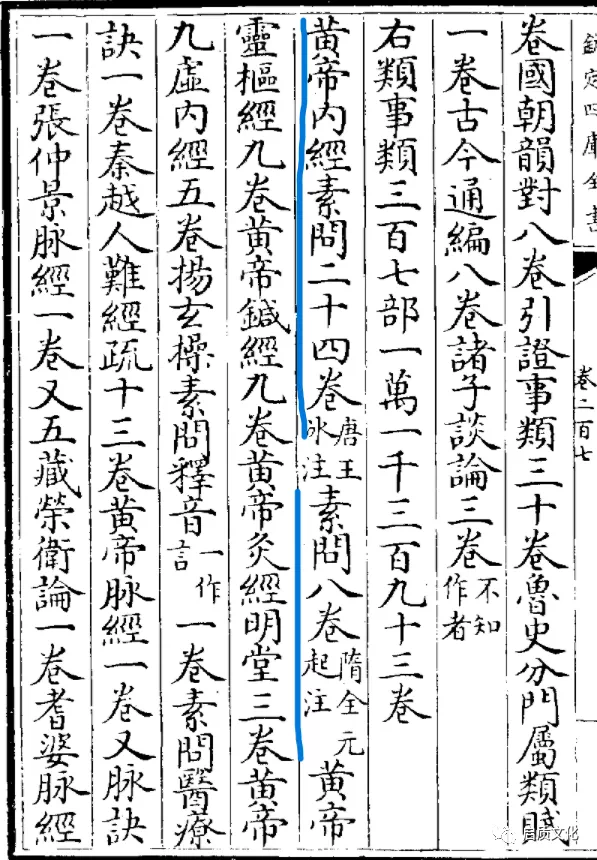 欽定四庫全書
卷二百七
卷國朝韻對八卷引證事類三十卷魯史分門屬類賦
一卷古今通編八卷諸子談論三卷不知作者
右類事類三百七部一萬一千三百九十三卷
黄帝内經素問二十四卷唐王冰注素問八卷隋全元起注黄帝
靈樞經九卷黄帝鍼經九卷黄帝灸經明堂三卷黄帝
九虛内經五卷揚玄操素問釋音一作言一卷素問醫療
訣一卷秦越人難經疏十三卷黄帝脉經一卷又脉訣
一卷張仲景脉經一卷又五藏榮衛論一卷耆婆脉經
质文化